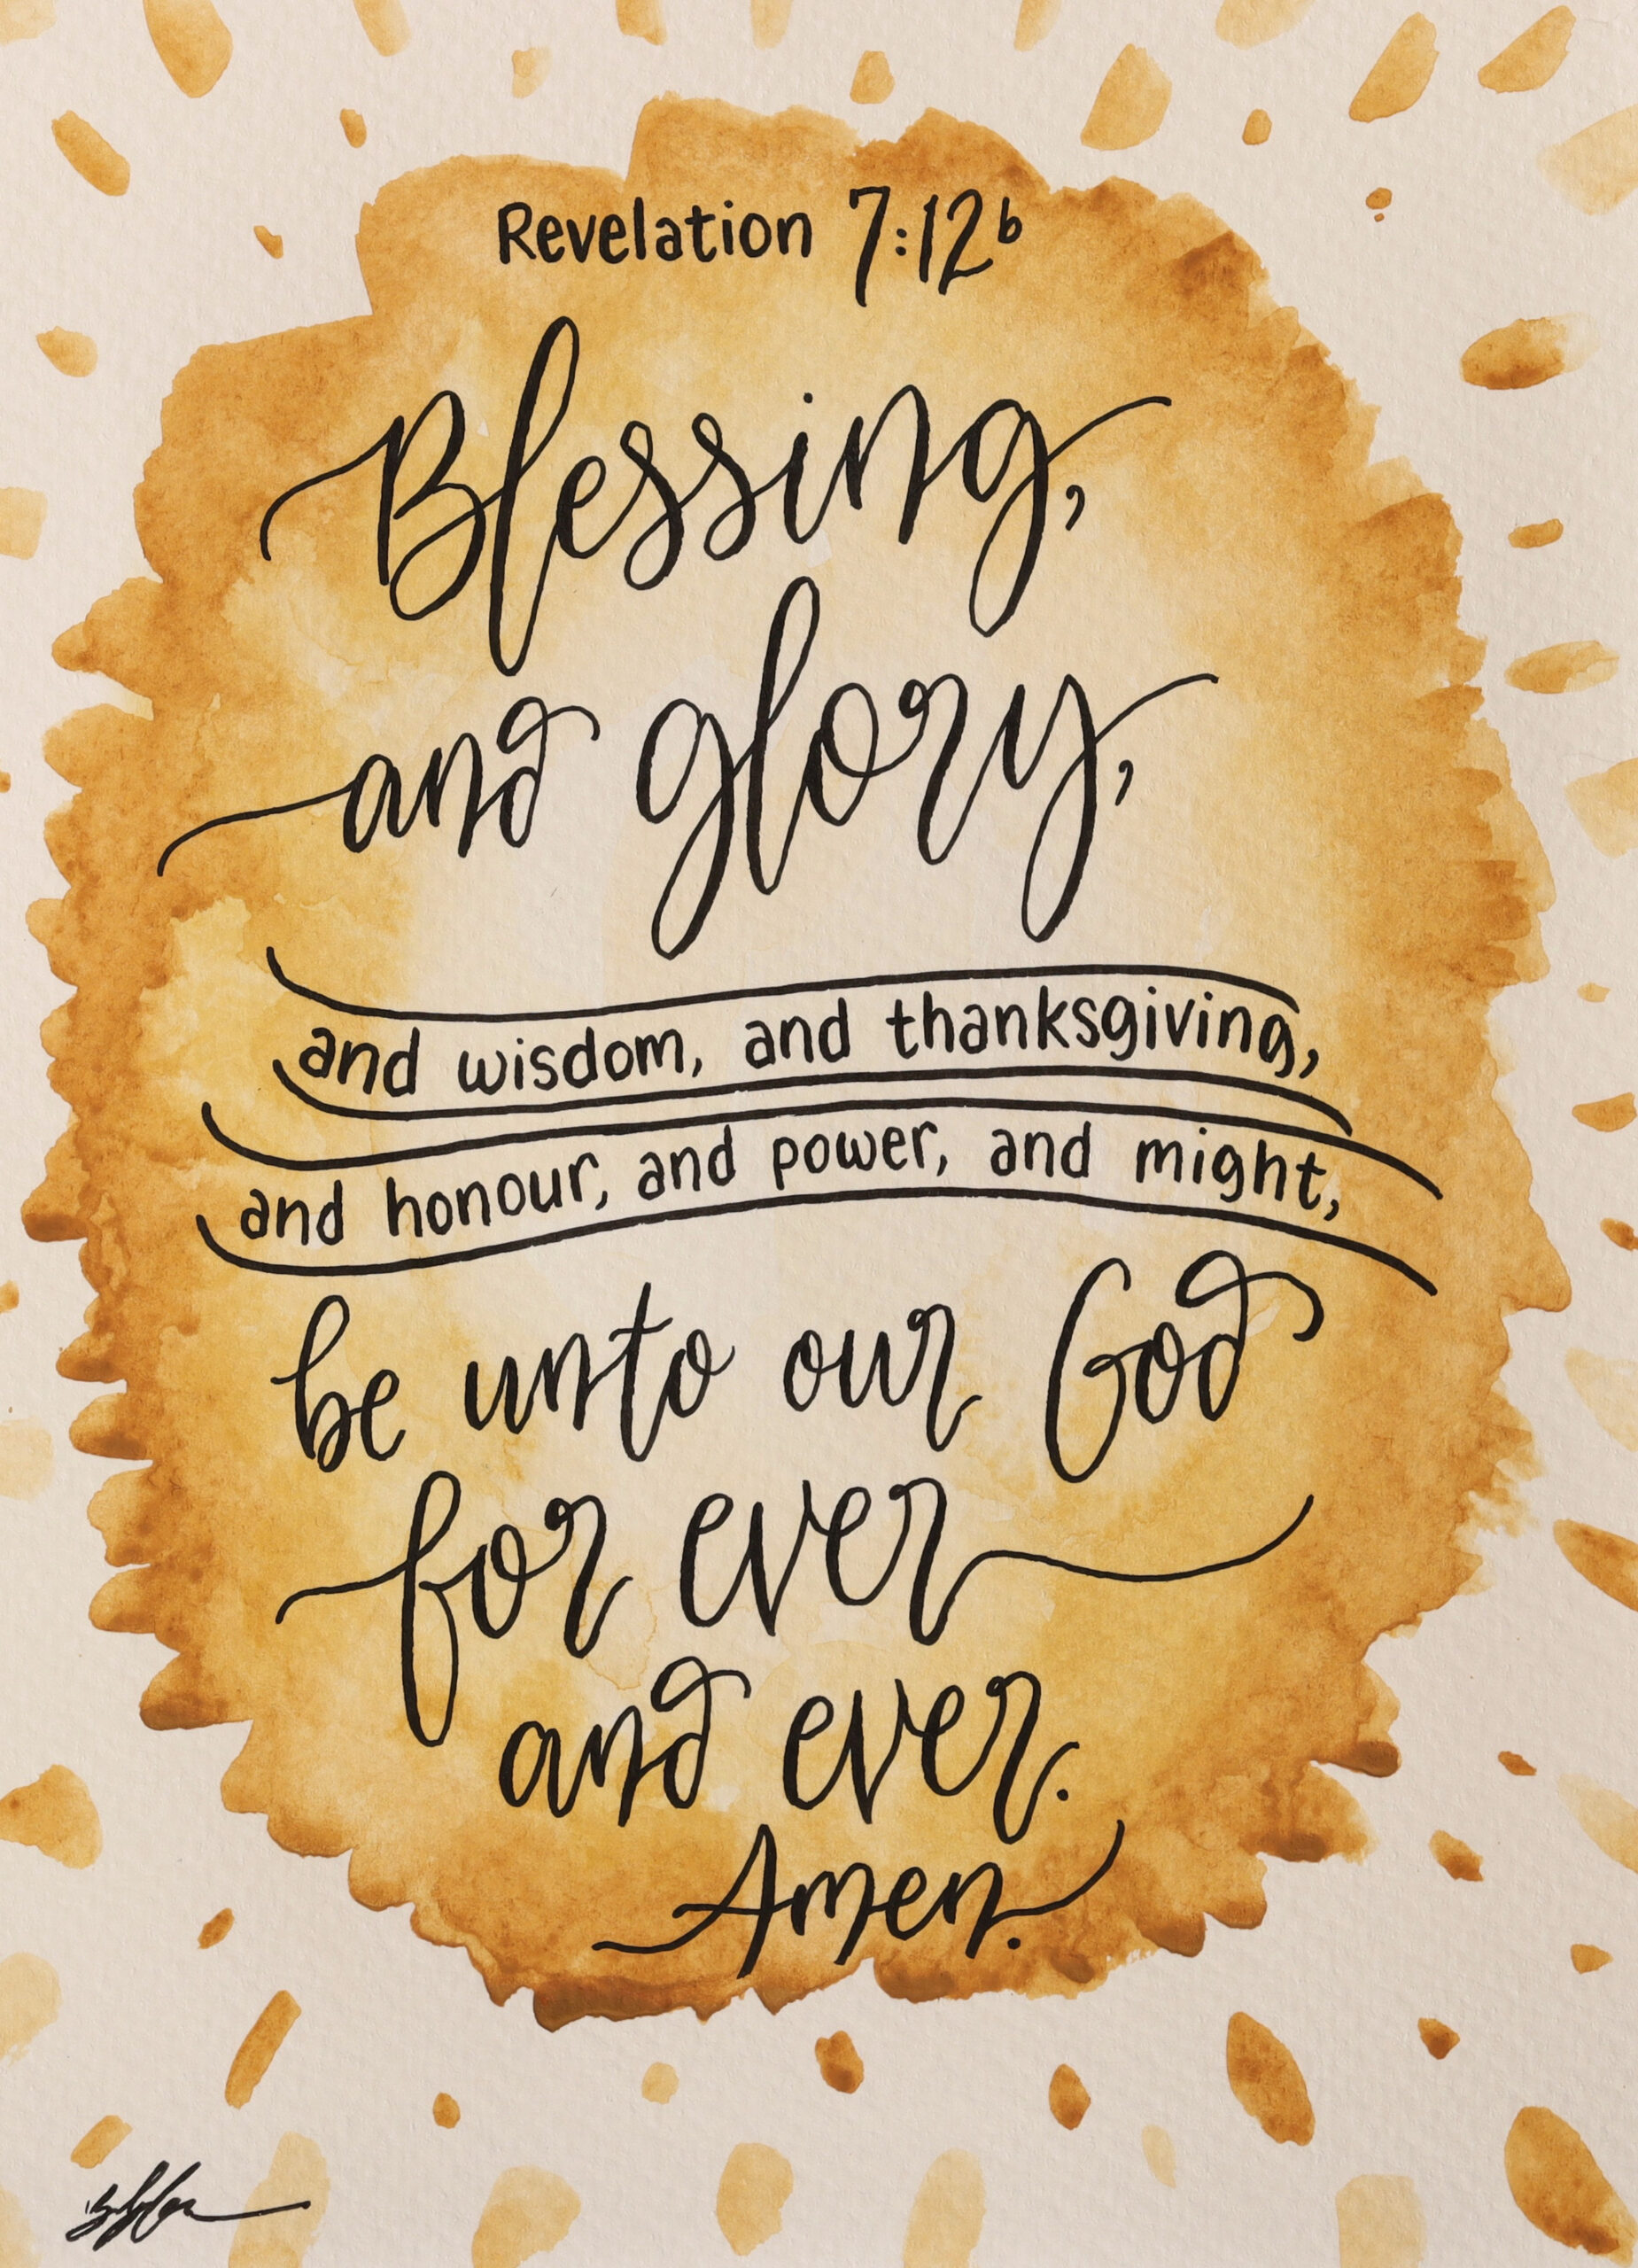 Revelation 7:12b
Blessing,
and glory,
and wisdom, and thanksgiving,
and honour, and power, and might,
be unto our God
for ever
and ever.
Amen.